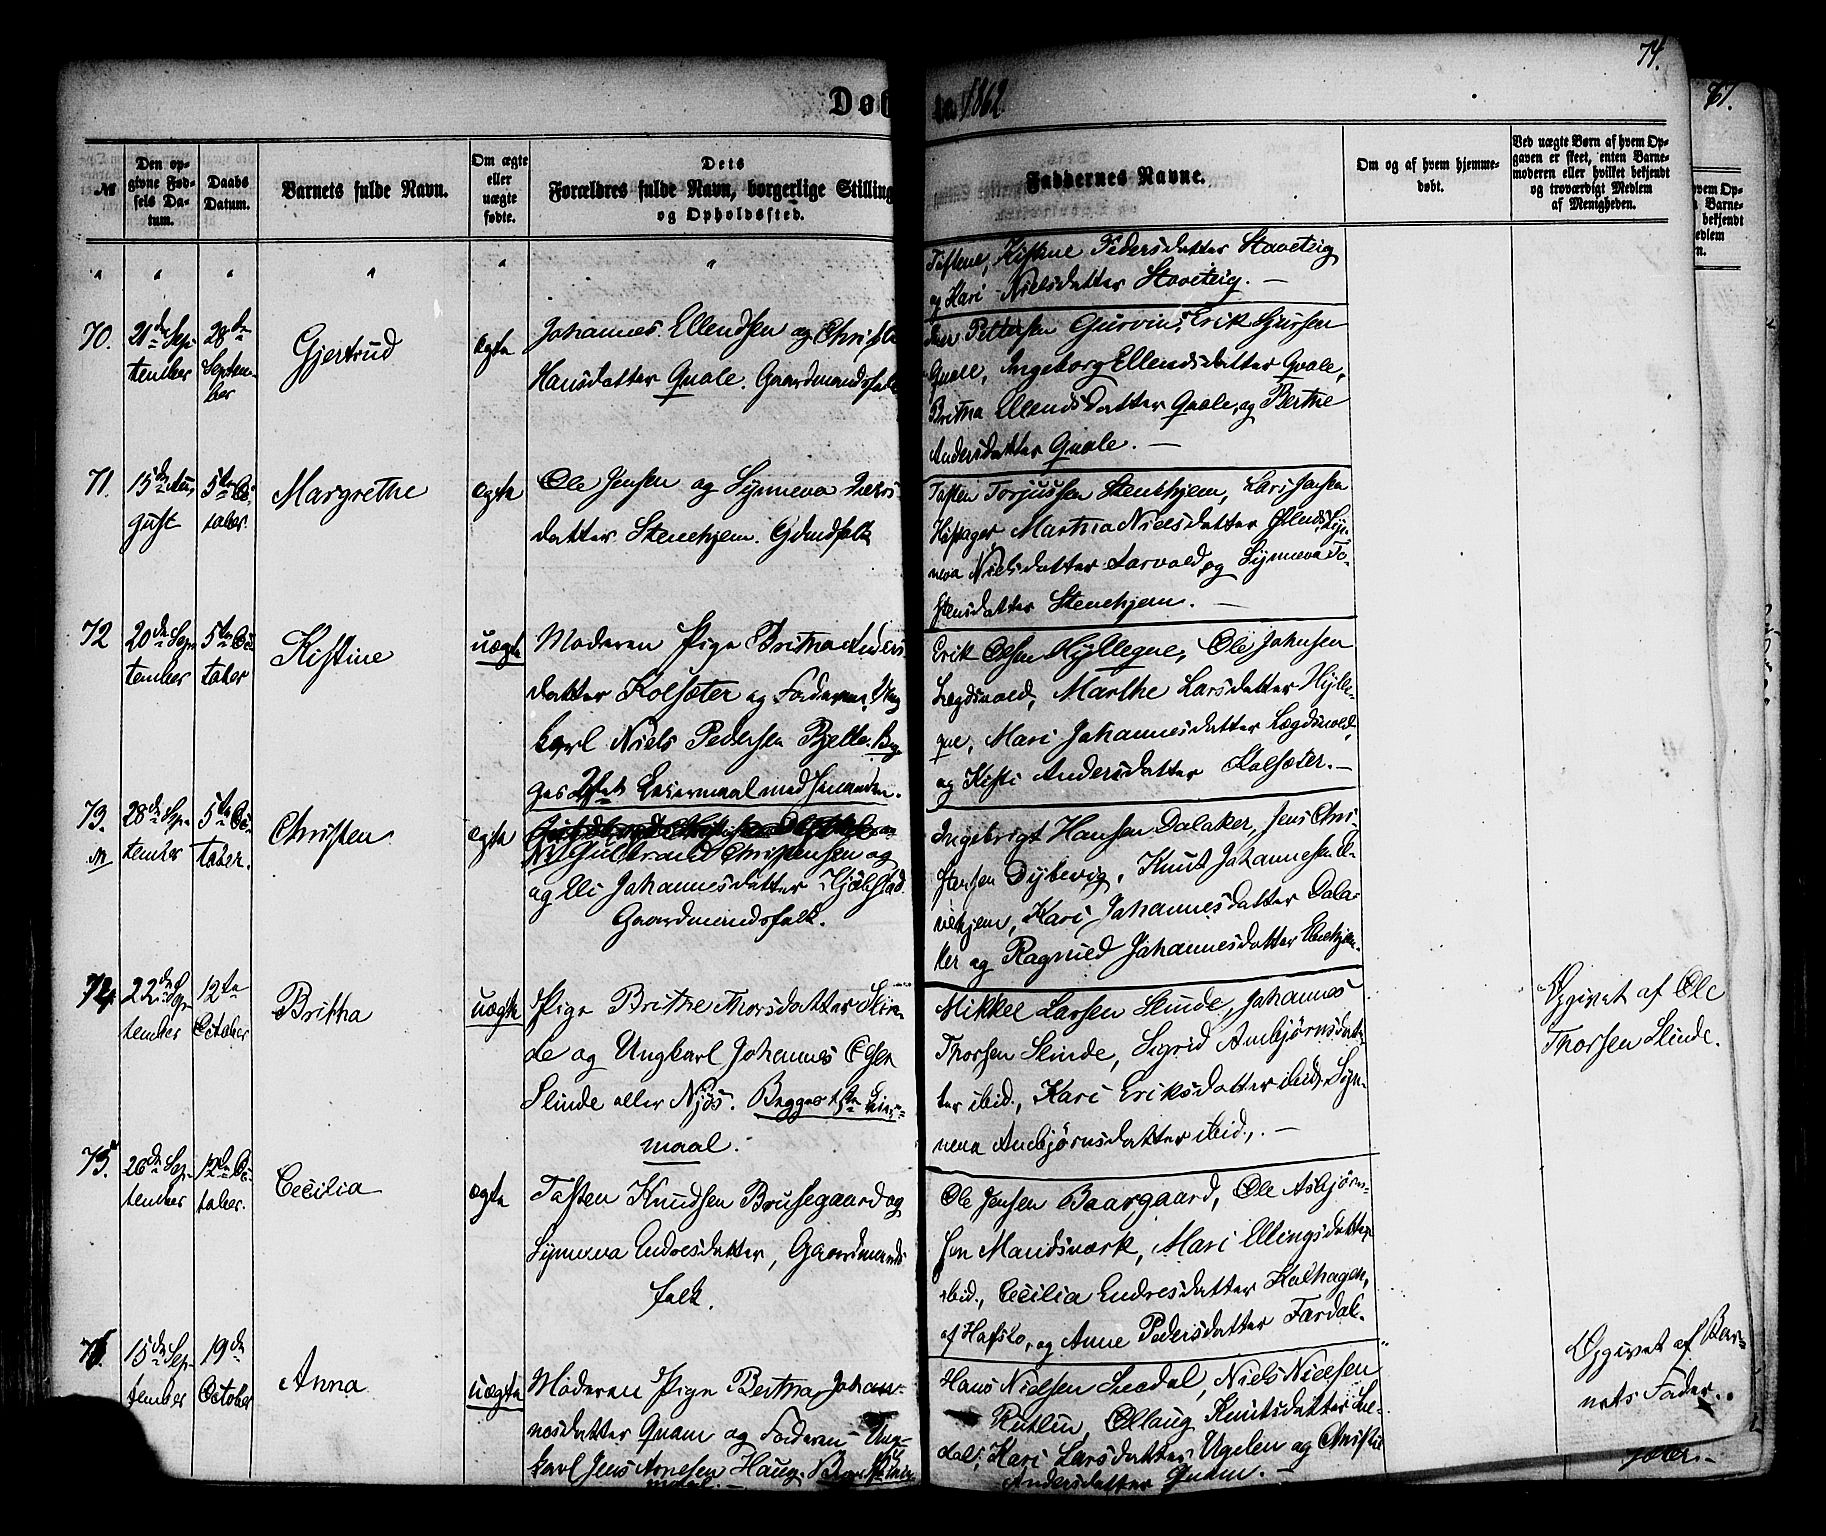 74.
67.
Døb
te 1862
№
Den opgivne Fødsels Datum.
Daabs Datum.
Barnets fulde Navn.
Om ægte eller uægte fødte.
Dets Forældres fulde Navn, borgerlige Stilling og Opholdssted.
Faddernes Navne.
Om og af hvem hjemmedøbt.
Ved uægte Børn af hvem Opgaven er skeet, enten Barnemoderen eller hvilket bekjendt og troværdigt Medlem af Menigheden.
Kistine Pedersdatter Staveteig
og Kari Nielsdatter Staveteig. —
70.
21de Sep-
tember
28de
Septem-
ber
Gjertrud
ægte
Johannes Ellendsen og
Hansdatter Qvale. Gaardmandsfolk
Pettersen Gurvin, Erik Sjursen
Qvale, Ingeborg Ellendsdatter Qvale,
Britha Ellendsdatter Qvale, og Berthe
Andersdatter Qvale. —
71.
15de Au-
gust
5te Oc-
tober.
Margrethe
ægte
Ole Jensen og Synneva
datter Stenehjem. Gdmdfolk
Torjussen Stenehjem, Lars Jensen
Martha Nielsdatter
neva Nielsdatter Aarvold, og Synneva To-
stensdatter Stenehjem. —
72
20de Sep-
tember
5te Oc-
tober
Kistine
uægte
Moderen Pige Britha Anders-
datter Kolsæter og Faderen, Ung-
karl Niels Pedersen Bjelle. Beg-
ges 2det Leiermaal med hinanden.
Erik Olsen Hyllegne, Ole Johnsen
Lægdsvold, Marthe Larsdatter Hylle-
gne, Mari Johannesdatter Lægdsvold,
og Kisti Andersdatter Kolsæter. —
73.
N
28de Sep-
tember
5te Oc-
tober.
Christen
ægte
Gulbrand Christensen og
og Eli Johannesdatter
Gaardmandsfolk.
Ingebrigt Hansen Dalaker, Jens Chri-
stensen Dybevig, Knut Johannesen
Kari Johannesdatter Dala-
ker og Ragnild Johannesdatter
74.
22de Sep-
tember
12te
October
Britha
uægte
Pige Brithe Thorsdatter Slin-
de og Ungkarl Johannes Olsen
Slinde eller Njøs. Begges 1ste Leier-
maal.
Mikkel Larsen Slinde, Johannes
Thorsen Slinde, Sigrid Ambjørnsdat-
ter ibid., Kari Eriksdatter ibid., Syn-
neva Ambjørnsdatter ibid., —
Opgivet af Ole
Thorsen Slinde.
75.
26de Sep-
tember
12te Oc-
tober.
Cecilia
ægte
Tosten Knudsen Brusegaard og
Synneva Endresdatter, Gaardmands-
folk.
Ole Jensen Baargaard, Ole Asbjørn-
sen Mandsværk, Mari Ellingsdatter
ibid., Cecilia Endresdatter Kalhagen,
af Hafslo, og Anne Pedersdatter Fardal.
76.
15de Sep-
tember
19de
October
Anna
uægte
Moderen Pige Bertha Johan-
nesdatter Qvam og Faderen Ung-
karl Jens Arnesen Haug.
Hans Nielsen Seedal, Niels Nielsen
Rutlin, Ollaug Knutsdatter See-
dal, Kari Larsdatter Ugelen og Christi
Andersdatter Qvam. —
Opgivet af Bar-
nets Fader.